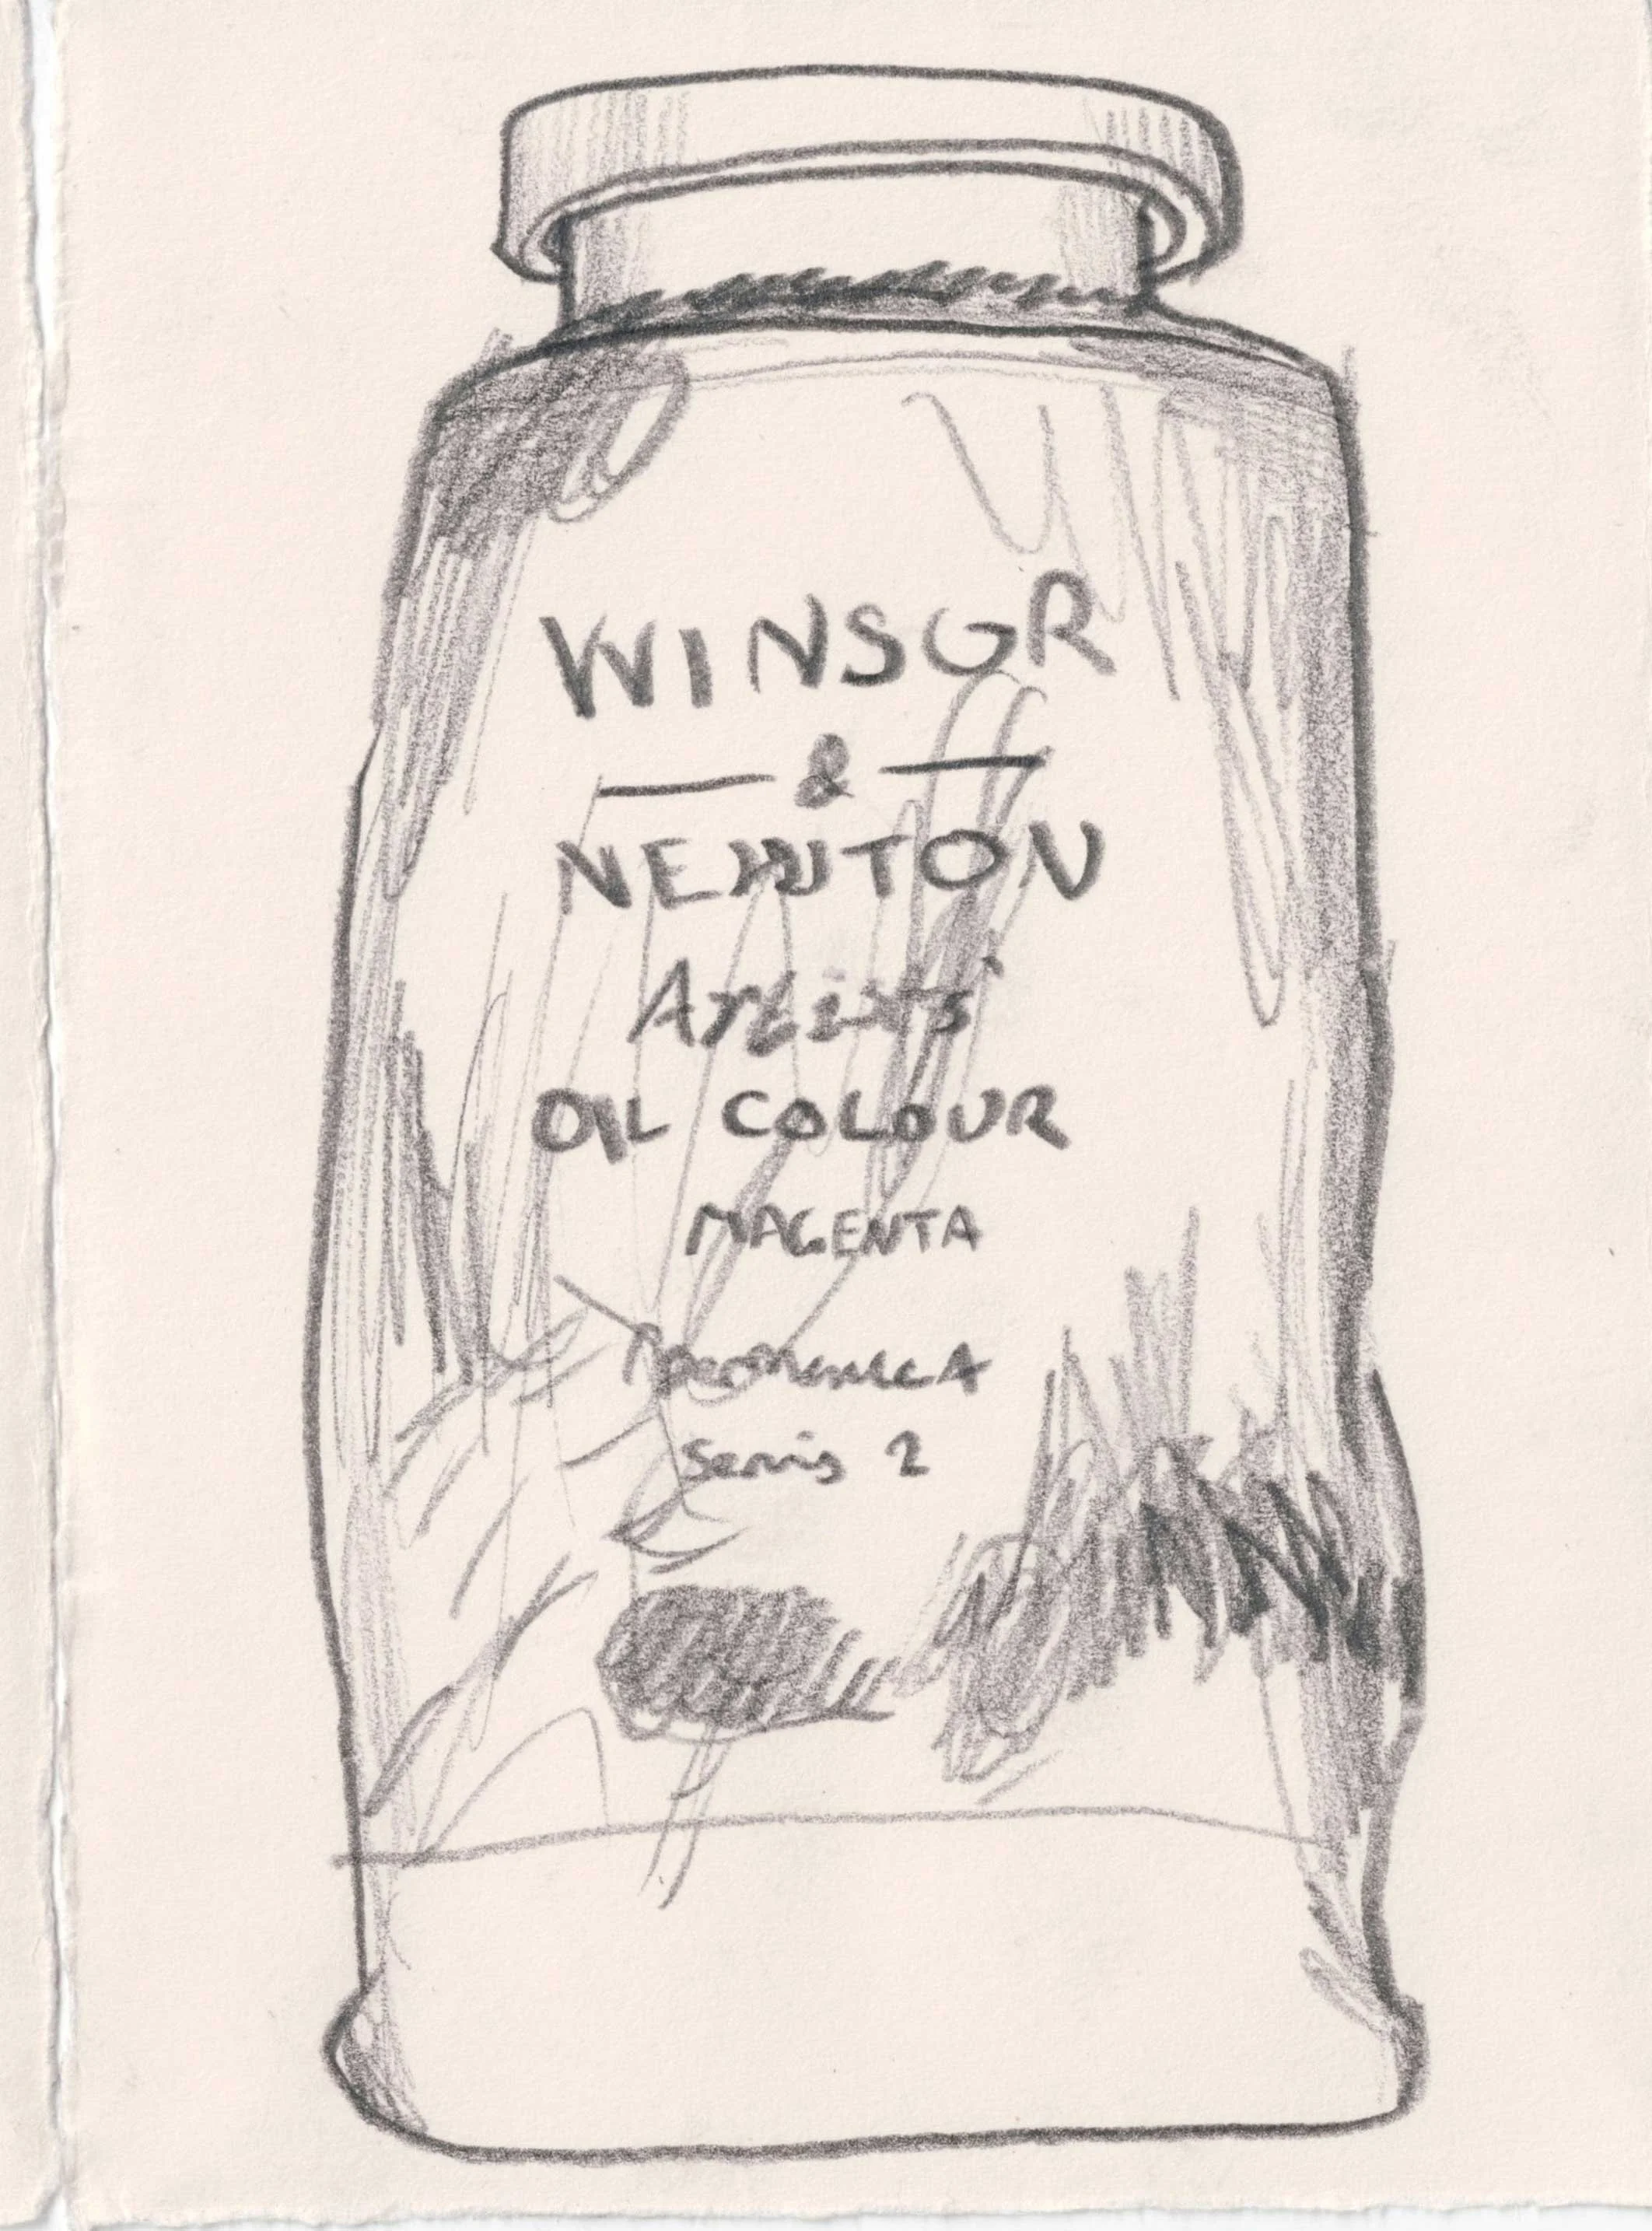 WINSOR
&
NEWTON
Artists'
OIL COLOUR
MAGENTA
Series 2